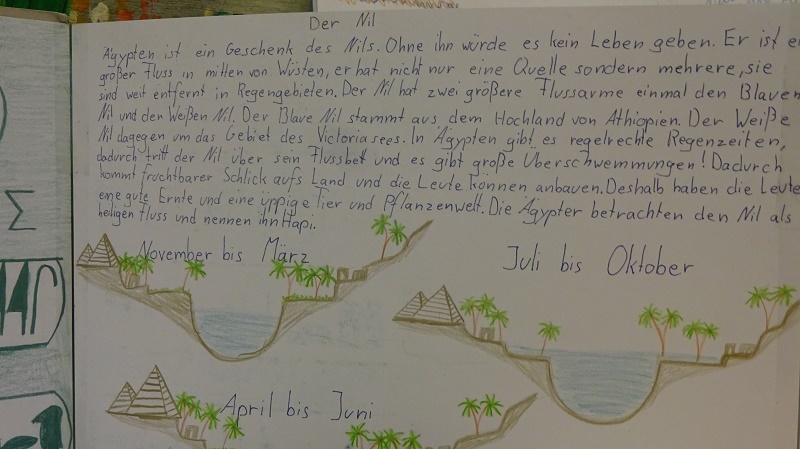 Der Nil
Ägypten ist ein Geschenk des Nils. Ohne ihn würde es kein Leben geben. Er ist e
großer Fluss in mitten von Wüsten, er hat nicht nur eine Quelle sondern mehrere, sie
sind weit entfernt in Regengebieten. Der Nil hat zwei größere Flussarme einmal den Blauen
Nil und den Weißen Nil. Der Blaue Nil stammt aus dem Hochland von Äthiopien. Der Weiße
Nil dagegen um das Gebiet des Victoriasees. In Ägypten gibt es regelrechte Regenzeiten,
dadurch tritt der Nil über sein Flussbet und es gibt große Überschwemmungen! Dadurch
kommt fruchtbarer Schlick aufs Land und die Leute können anbauen. Deshalb haben die Leute
eine gute Ernte und eine üppige Tier und Pflanzenwelt. Die Ägypter betrachten den Nil als
heiligen Fluss und nennen ihn Hapi.
November bis März
Juli bis Oktober
April bis Juni